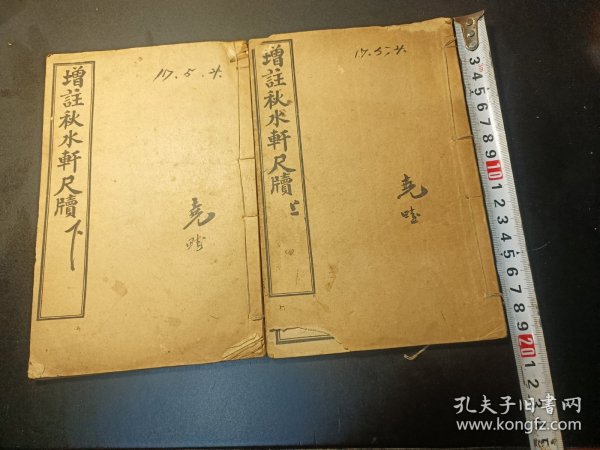 增註秋水軒尺牘
下
17.5.4.
堯
增註秋水軒尺牘
上
17.5.4.
堯
3 4 5 6 7 8 9 10 1 2 3 4 5 6 7 8 9 20 1 2 3
孔夫子旧书网
kongfz.com